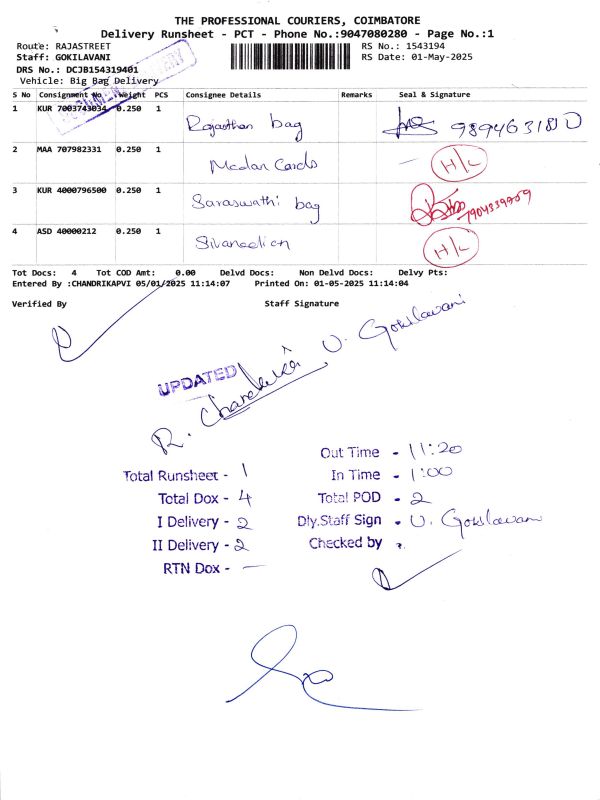 THE PROFESSIONAL COURIERS, COIMBATORE
Delivery Runsheet - PCT - Phone No.:9047080280 - Page No.:1
Route: RAJASTREET
RS No.: 1543194
Staff: GOKILAVANI
RS Date: 01-May-2025
DRS No.: DCJB154319401
Vehicle: Big Bag Delivery
S No Consignment No Weight PCS Consignee Details Remarks Seal & Signature
1 KUR 7003743034 0.250 1 Rajasthan bag
2 MAA 707982331 0.250 1 Madan Cards H/L
3 KUR 4000796500 0.250 1 Saraswathi bag
4 ASD 40000212 0.250 1 H/L
Tot Docs: 4 Tot COD Amt: 0.00 Delvd Docs: Non Delvd Docs: Delvy Pts:
Entered By :CHANDRIKAPVI 05/01/2025 11:14:07 Printed On: 01-05-2025 11:14:04
Verified By Staff Signature
U. Gokilavani
UPDATED
Out Time - 11:20
Total Runsheet - 1
In Time - 1:00
Total Dox - 4
Total POD - 2
I Delivery - 2
Dly.Staff Sign - U. Gokilavani
II Delivery - 2
Checked by -
RTN Dox - —